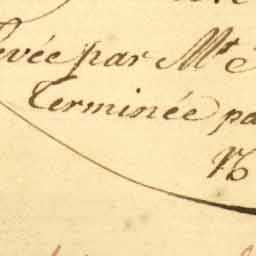 evée par Mr
Terminée pa